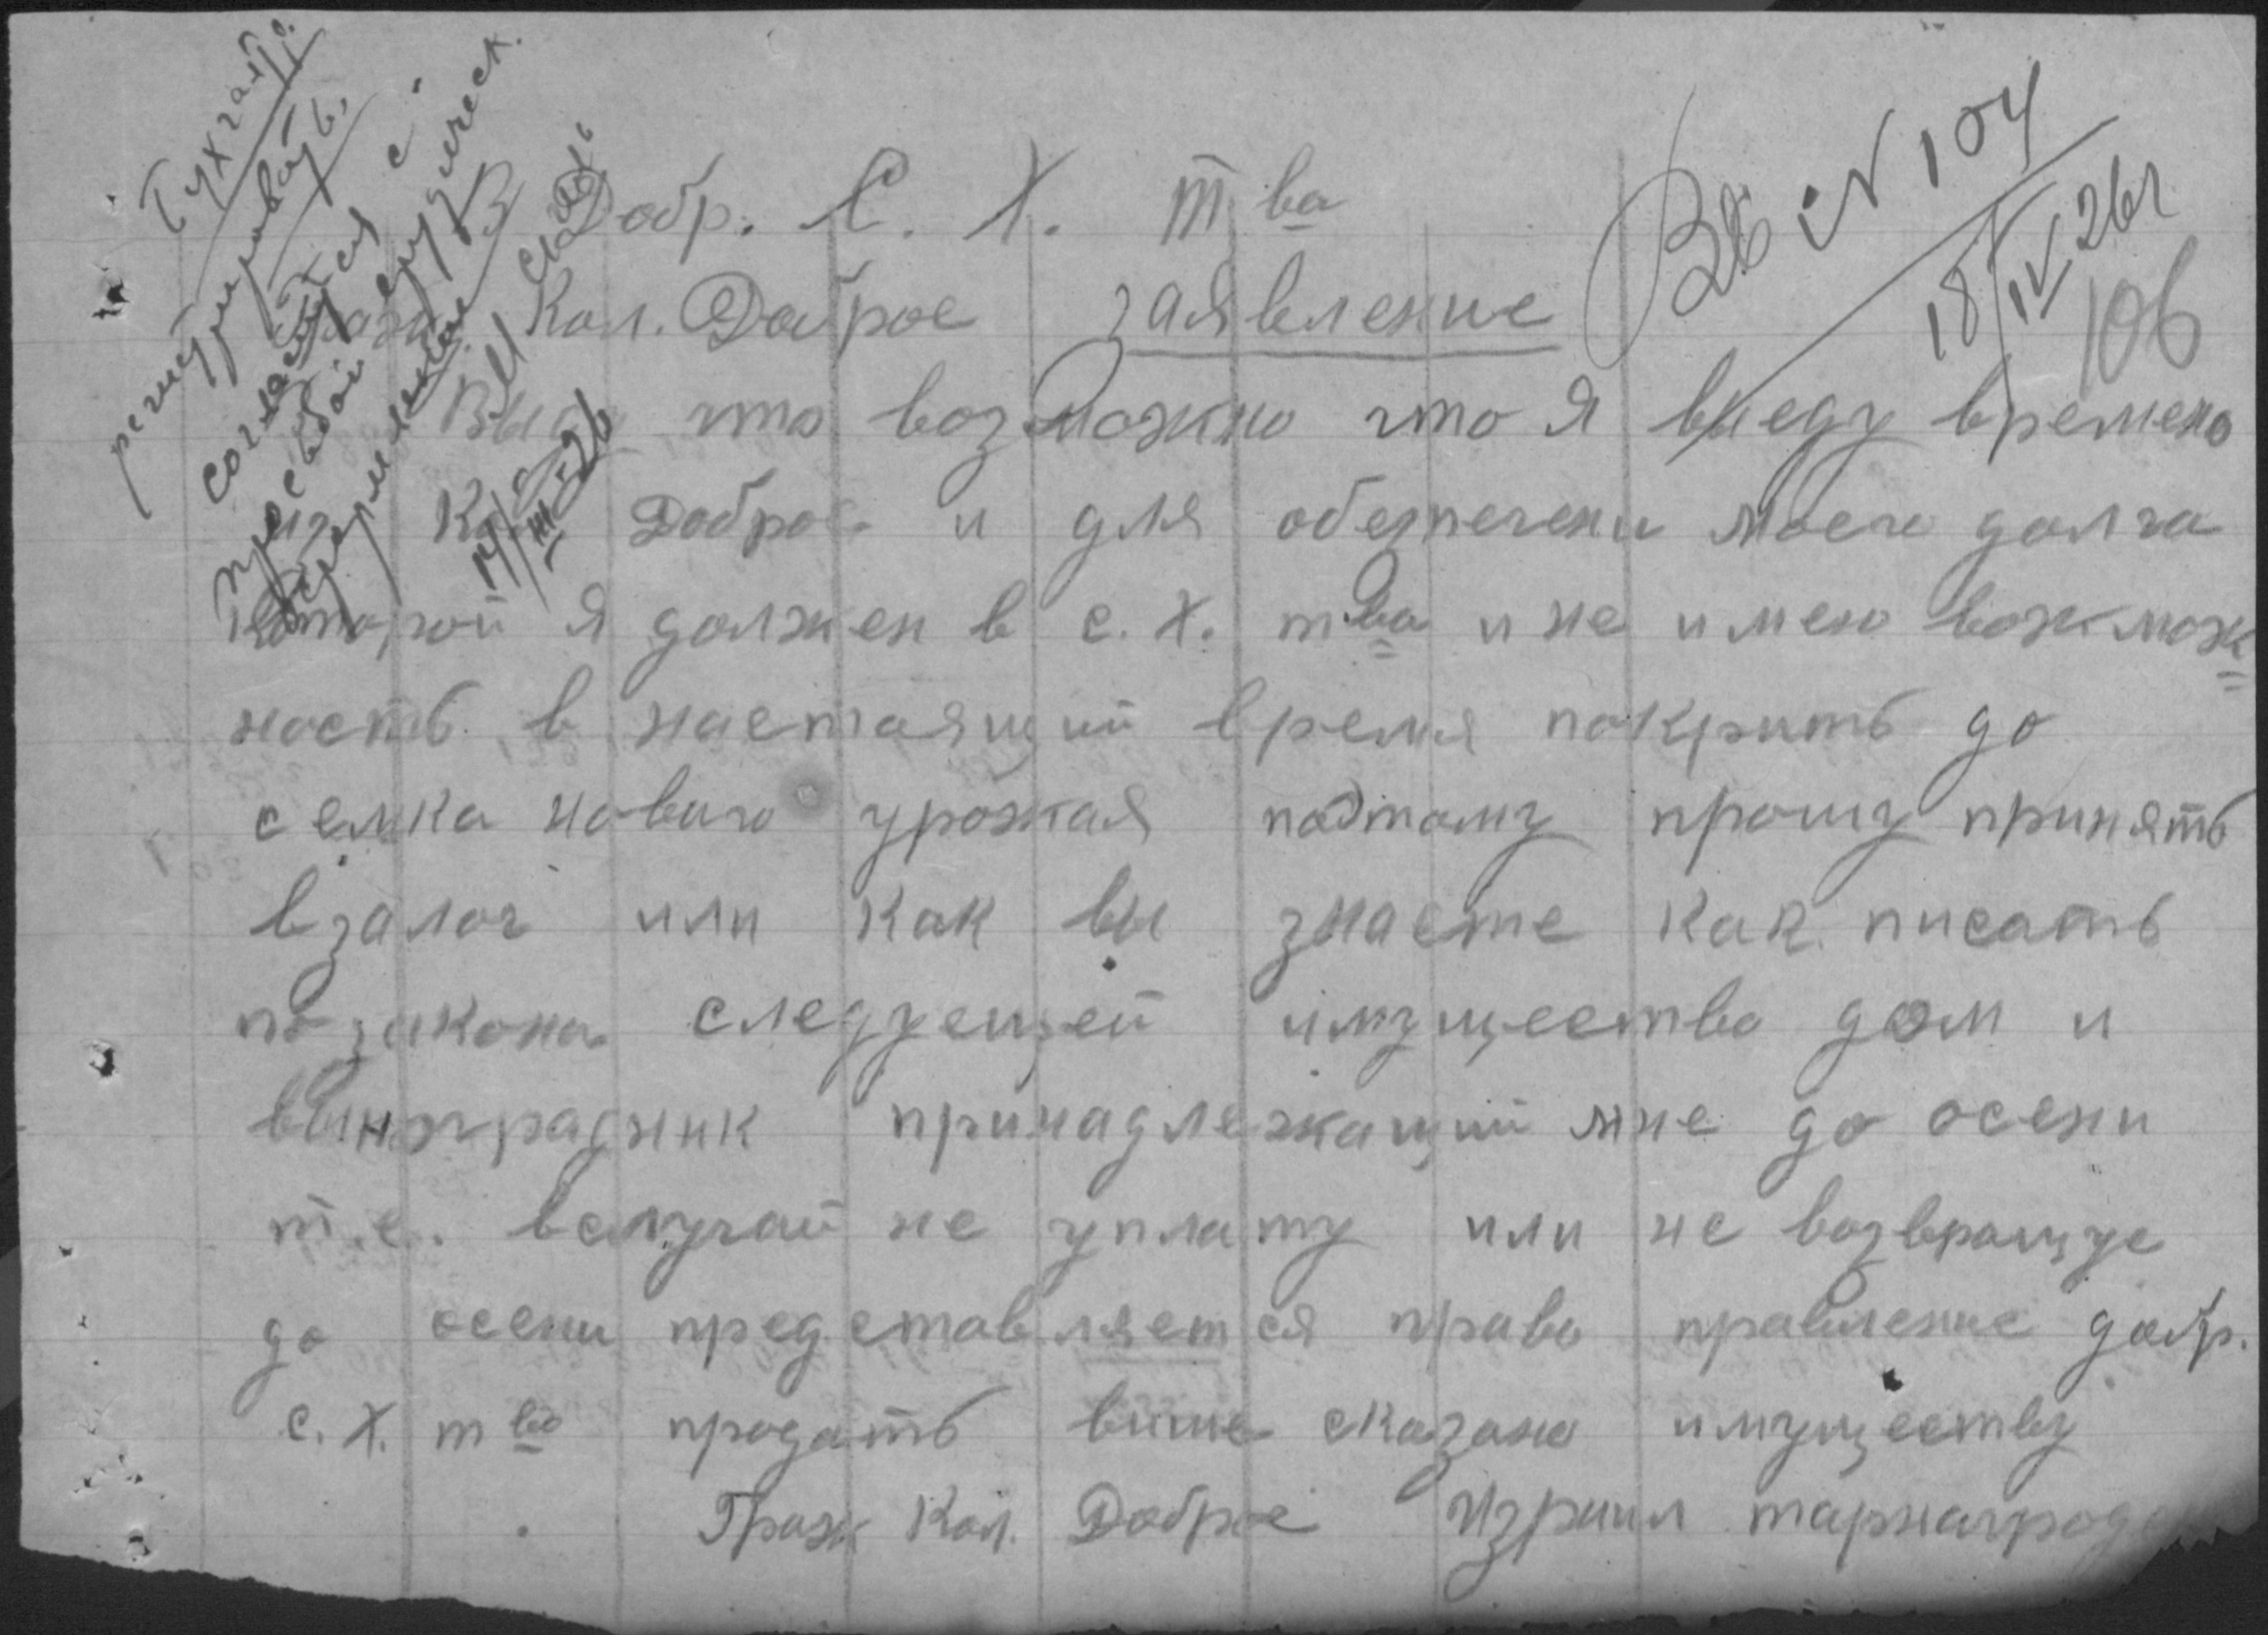 Бухгал.
регистрировать.
согласуйся с
юридическ.
Добр. С. Х. Тва
Кол. Доброе заявление
Вх N 104
18/IV 26г
106
что возможно что я виеду времено
Кол Доброе и для обезпечени моего долга
которой я должен в с. х. тва и не имею вожмож
ность в настоящий время покрить до
семка нового урожая поэтому прошу принять
взалог или как вы знаете как писать
по закона следующей имущество дом и
виноградник принадлежащий мне до осени
т.е. вслучай не уплату или не возвращус
до осени представляется право правление добр.
с. х. тво продать више сказано имуществу
Граж Кол. Доброе Изриил тарнагрод